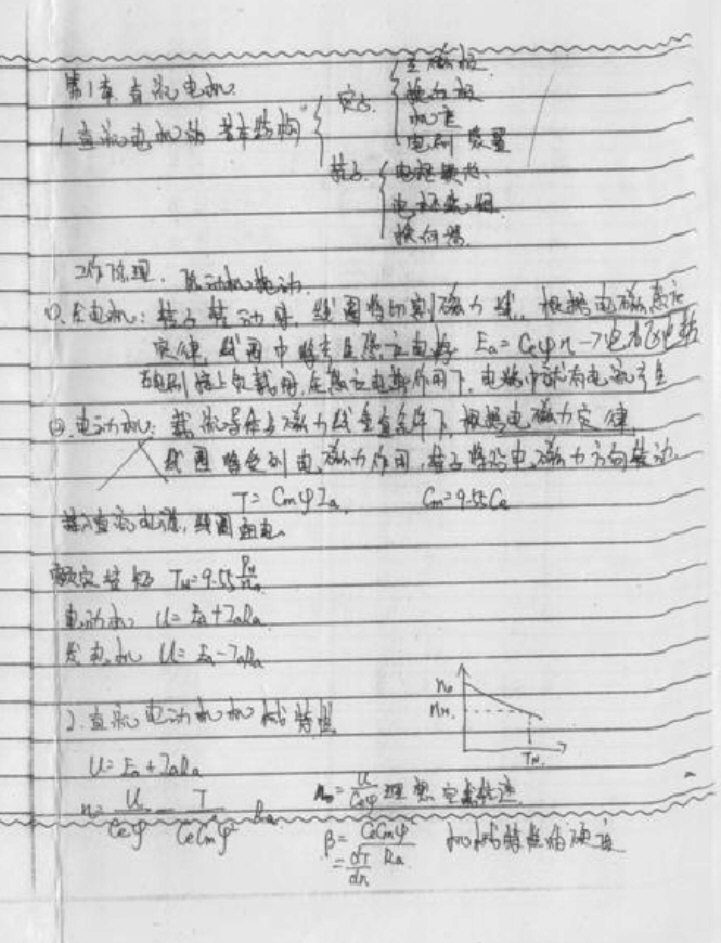 第1章 直流电机
1. 直流电机的基本结构 { 定子 { 主磁极
换向极
机座
电刷装置
转子 { 电枢铁芯
电枢绕组
换向器
工作原理
①. 发电机: 转子转动时, 线圈将切割磁力线, 根据电磁感应
定律, 线圈中将产生感应电势 Ea = CeφN →
电刷接上负载时, 在感应电势作用下, 电路中就有电流产生
②. 电动机: 载流导体与磁力线垂直条件下, 根据电磁力定律,
线圈将受到电磁力作用, 转子将沿电磁力方向转动.
T = CmφIa, Cm=9.55Ce
直流电源, 线圈
额定转矩 TN=9.55 PN/nN
电动机 U = Ea+IaRa
发电机 U = Ea-IaRa
n0
nN
TN
2. 直流电动机机械特性
U = Ea + IaRa
n = U/Ceφ - T/CeCmφ² Ra n0 = U/Ceφ 理想空载转速
β = CeCmφ²/Ra 机械特性的硬度
= dT/dn